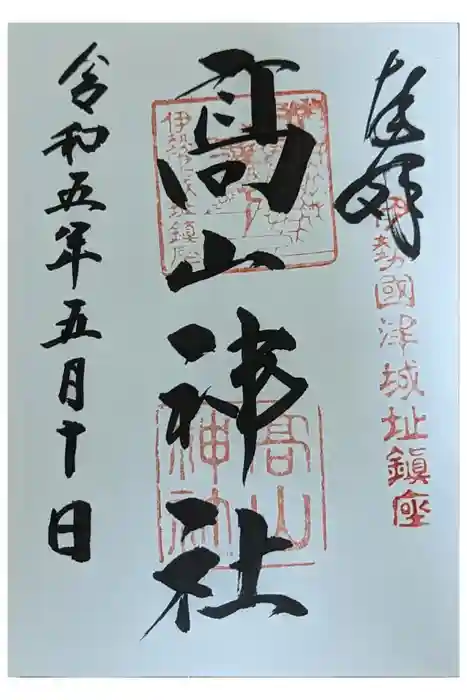 奉拝
伊勢國津城址鎮座
高山神社
高山
神社
令和五年五月十日